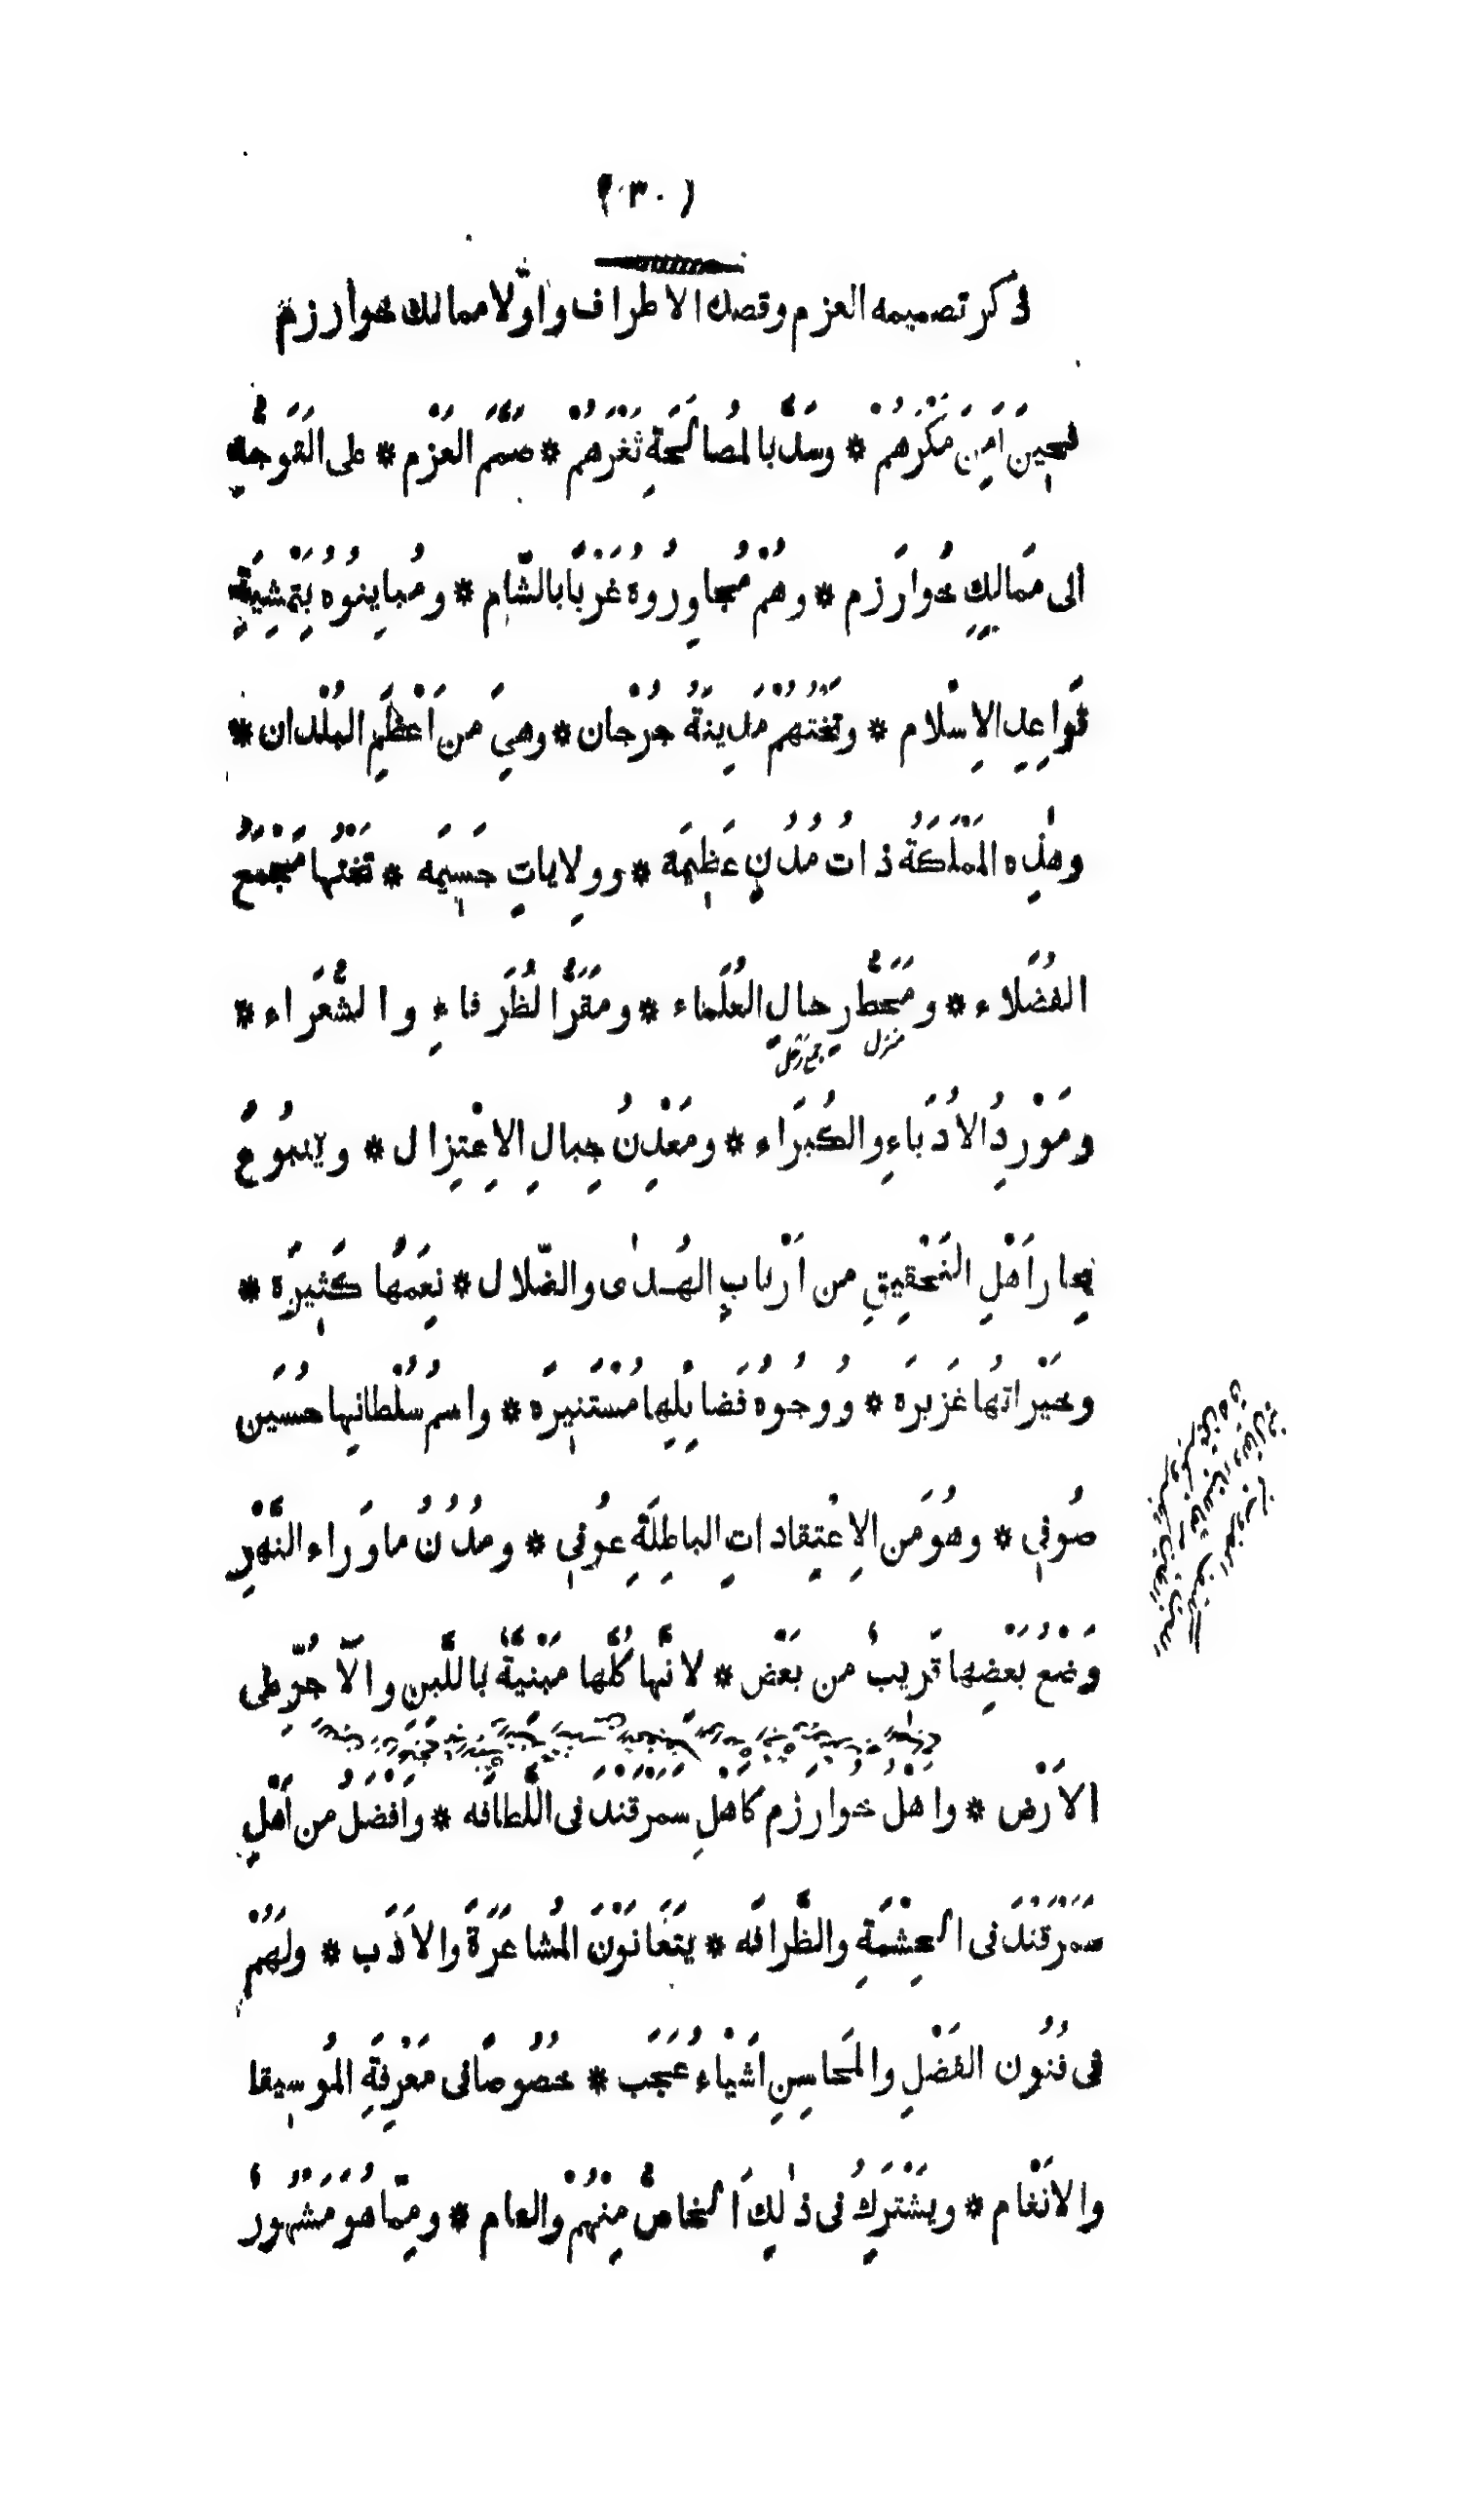 (٣٠)
ذكر تصميمه العزم وقصده الاطراف واوّلا ممالك خوارزم
فحِينَ اَمِنَ مَكْرَهُمْ * وسَدَّ بالمُصالَحَةِ ثَغْرَهُمْ * صَمَّمَ العَزْم * على التَّوجُّهِ
الى مَمالِكِ خُوارَزم * وهُمْ مُجاوِرُوهُ غَرْبًا بالشّام * ومُبايِنُوهُ بِتَمْشِيَةِ
قَواعِدِ الاِسْلام * وتَخْتُهُمْ مَدِينَةُ جُرْجان * وهِيَ من اَعْظَمِ البُلْدان *
وهٰذِه المَمْلَكَةُ ذاتُ مُدُنٍ عَظِيمَة * وولاياتٍ جَسِيمَه * تَخْتُها مَجْمَعُ
الفُضَلاء * ومَحَطُّ رِحالِ العُلَماء * ومَقَرُّ الظُرَفاءِ والشُّعَراء *
منزل جمع رحل
ومَوْرِدُ الاُدَباءِ والكُبَرَاء * ومَعْدِنُ جِبالِ الاِعْتِزال * ويَنْبُوعُ
بِحارِ اَهْلِ التَحْقِيقِ من اَرْبابِ الهُدٰى والضّلال * نِعَمُها كَثِيرَه *
وخَيْراتُها غَزِيرَه * ووُجُوهُ فَضايِلِها مُسْتَنِيرَه * واسمُ سُلْطانِها حُسَين
صُوفِي * وهُوَ من الاِعْتِقاداتِ الباطِلَةِ عُوفِي * ومُدُنُ ماوَراء النَّهْرِ
وَضْعُ بَعْضِها قَرِيبٌ من بَعْض * لانَّها كُلَّها مَبْنِيَّةٌ باللَّبِنِ والآجُرِّ على
الاَرْض * واهْلُ خوارزم كاهْلِ سَمَرْقَنْدَ فى اللَّطافَه * واَفْضَلُ من اَهْلِ
سَمَرْقَنْدَ فى الحِشْمَةِ والظَّرافَه * يَتَعانَوْنَ المُشاعَرَةَ والاَدَب * ولَهُمْ
فى فُنُونِ الفَضْلِ والمَحاسِنِ اَشْياءُ عَجَب * خُصُوصًا فى مَعْرِفَةِ المُوسِيقا
والاَنْغام * ويَشْتَرِكُ فى ذٰلِكَ الخاصُّ مِنْهُمْ والعام * ومِمّا هُوَ مَشْهُورٌ